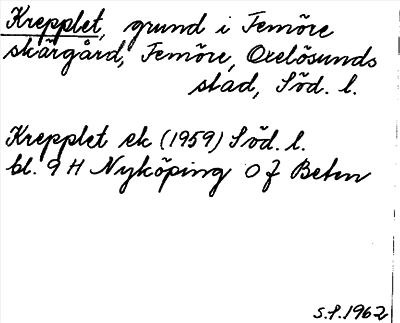 Krepplet, grund i Femöre
skärgård, Femöre, Oxelösunds
stad, Söd. l.
Krepplet ek (1959) Söd. l.
bl. 9 H Nyköping 0 f Beten
s.f. 1962